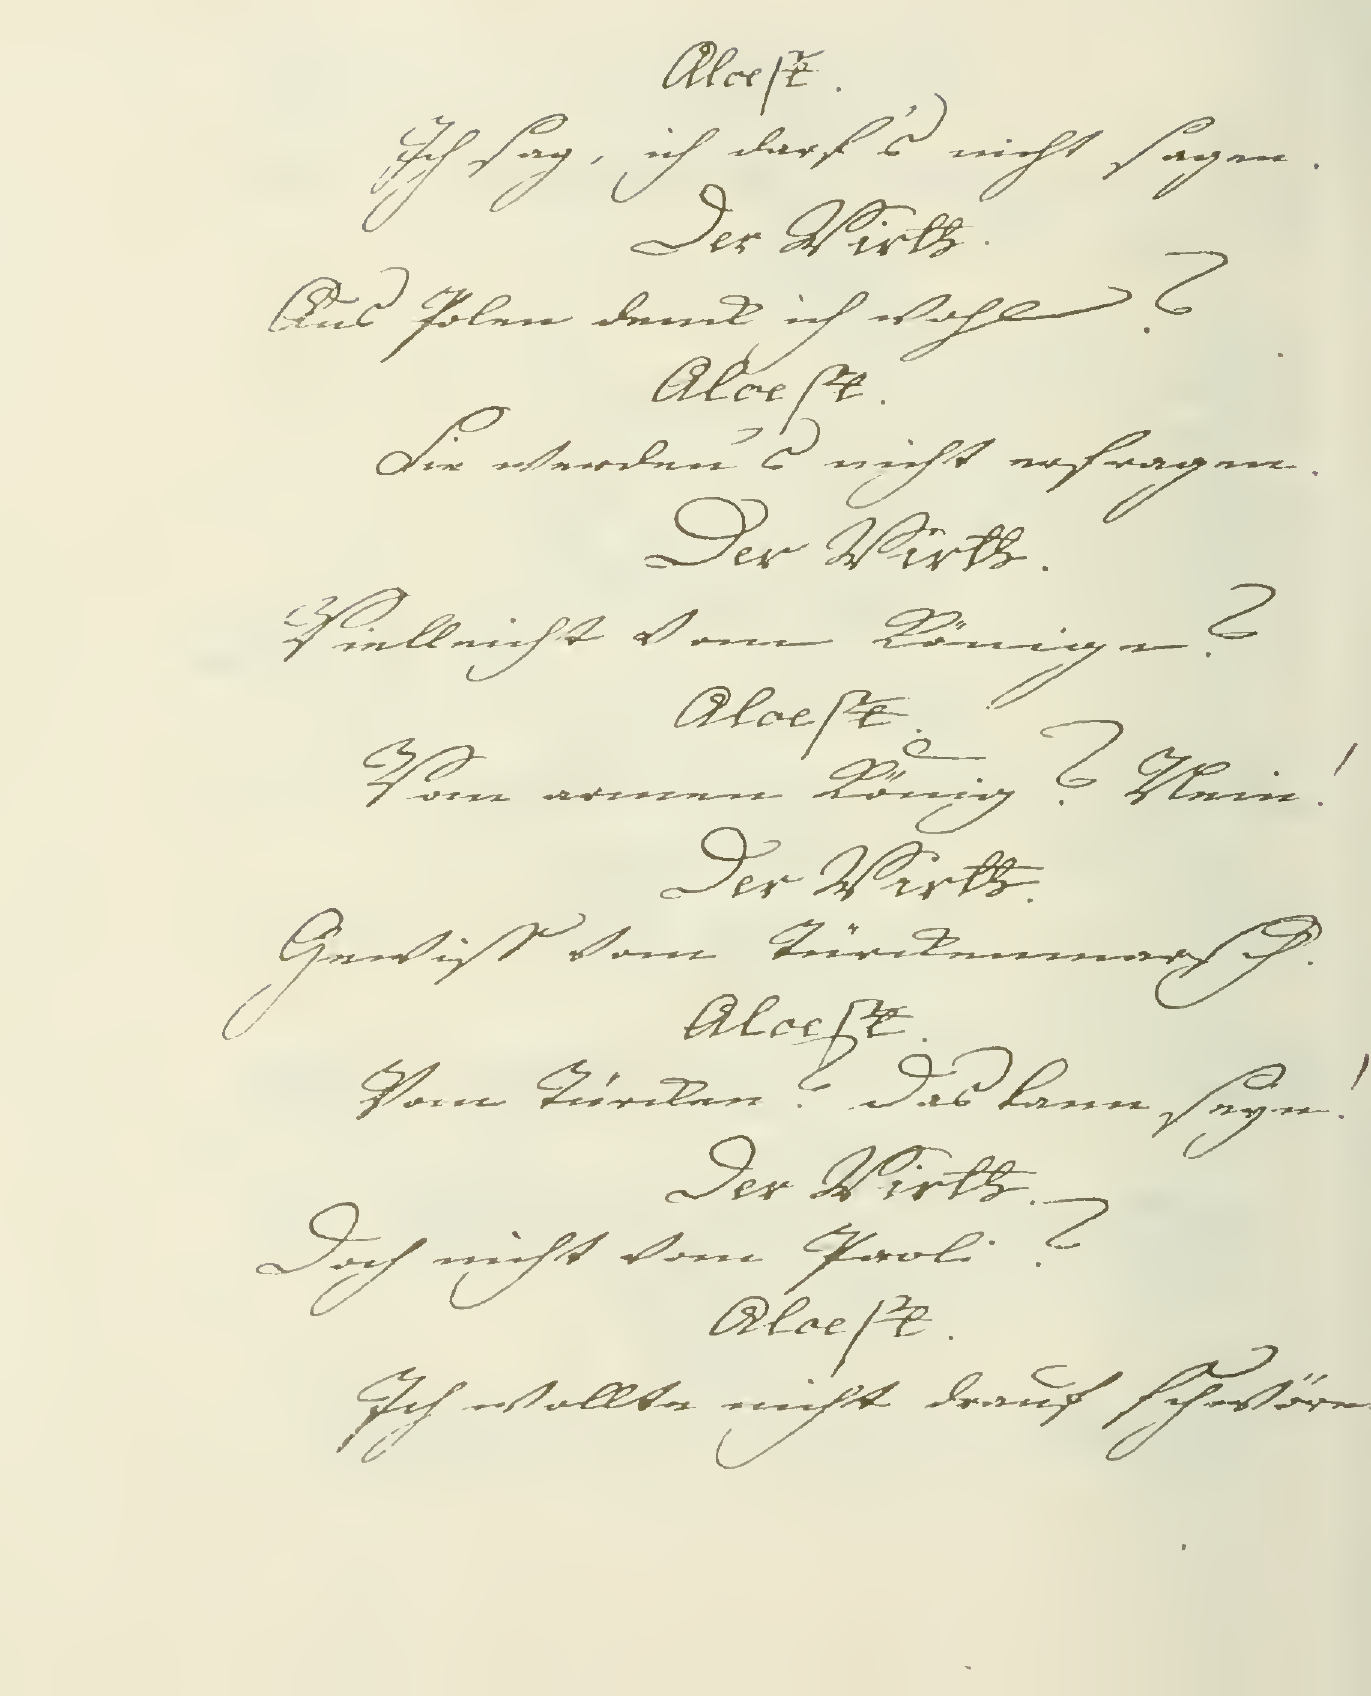 Alceste.
Ich sag, ich darf's nicht sagen.
Der Wirth.
Aus Polen denck ich wohl?
Alceste.
Sie werden's nicht erfragen.
Der Wirth.
Vielleicht vom Könige?
Alceste.
Vom armen König? Nein!
Der Wirth.
Gewiss vom Türckenmarsch.
Alceste.
Vom Türcken? Das kann seyn!
Der Wirth.
Doch nicht vom Paoli?
Alceste.
Ich wollte nicht drauf schwören